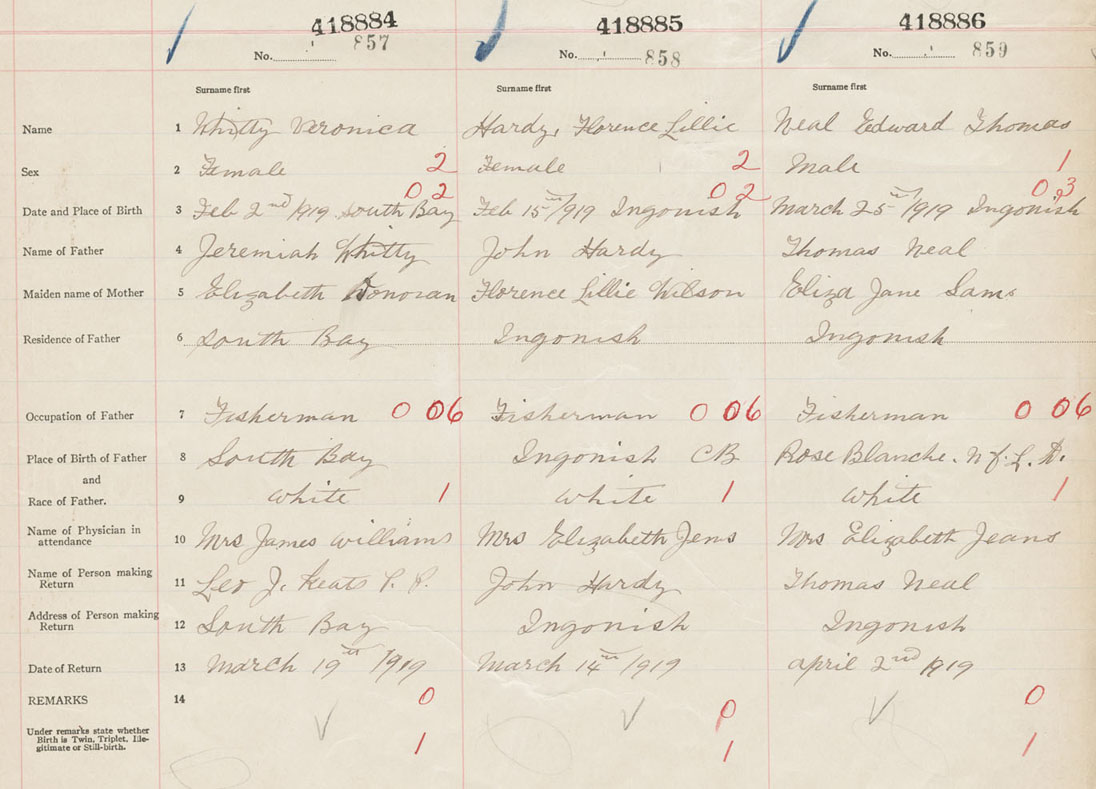 418884 418885 418886
No. 857 No. 858 No. 859
Surname first Surname first Surname first
Name 1 Whitty Veronica Hardy, Florence Lillie Neal Edward Thomas
Sex 2 Female 2 Female 2 Male 1
02 02 03
Date and Place of Birth 3 Feb 2nd 1919 South Bay Feb 15th/1919 Ingonish March 25th/1919 Ingonish
Name of Father 4 Jeremiah Whitty John Hardy Thomas Neal
Maiden name of Mother 5 Elizabeth Donovan Florence Lillie Wilson Eliza Jane Sams
Residence of Father 6 South Bay Ingonish Ingonish
Occupation of Father 7 Fisherman 0 06 Fisherman 0 06 Fisherman 0 06
Place of Birth of Father 8 South Bay Ingonish CB Rose Blanche. N f. L. D.
and
Race of Father. 9 White 1 White 1 White 1
Name of Physician in
attendance 10 Mrs James Williams Mrs Elizabeth Jens Mrs Elizabeth Jeans
Name of Person making
Return 11 Leo J. Keats P. P. John Hardy Thomas Neal
Address of Person making
Return 12 South Bay Ingonish Ingonish
Date of Return 13 March 19th 1919 March 14th/1919 april 2nd 1919
REMARKS 14 0 0 0
Under remarks state whether
Birth is Twin, Triplet, Ille-
gitimate or Still-birth. 1 1 1